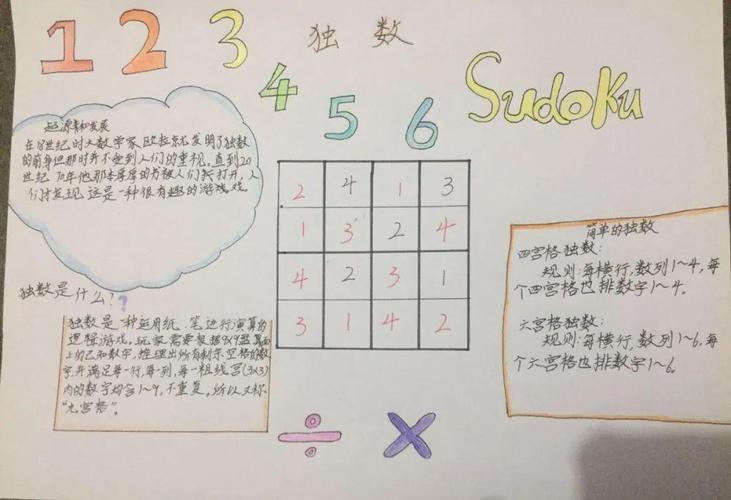 1 2 3
独数
4 5 6
Sudoku
起源和发展
在18世纪时大数学家欧拉就发明了独数
的前身但那时并不受到人们的重视,直到20
世纪70年他那本厚厚的书被人们打开,人
们才发现这是一种很有趣的游戏戏
2 4 1 3
1 3 2 4
4 2 3 1
3 1 4 2
简单的独数
四宫格独数:
规则:每横行,数列1~4,每
个四宫格也排数字1~4。
六宫格独数:
规则:每横行,数列1~6,每
个六宫格也排数字1~6。
独数是什么?
独数是一种运用纸、笔进行演算的
逻辑游戏。玩家需要根据9X9盘面
上的已知数字,推理出所有剩余空格的数
字,并满足每一行,每一列,每一粗线宫(3x3)
内的数字均含1~9,不重复。所以又称
“九宫格”。
÷ ×